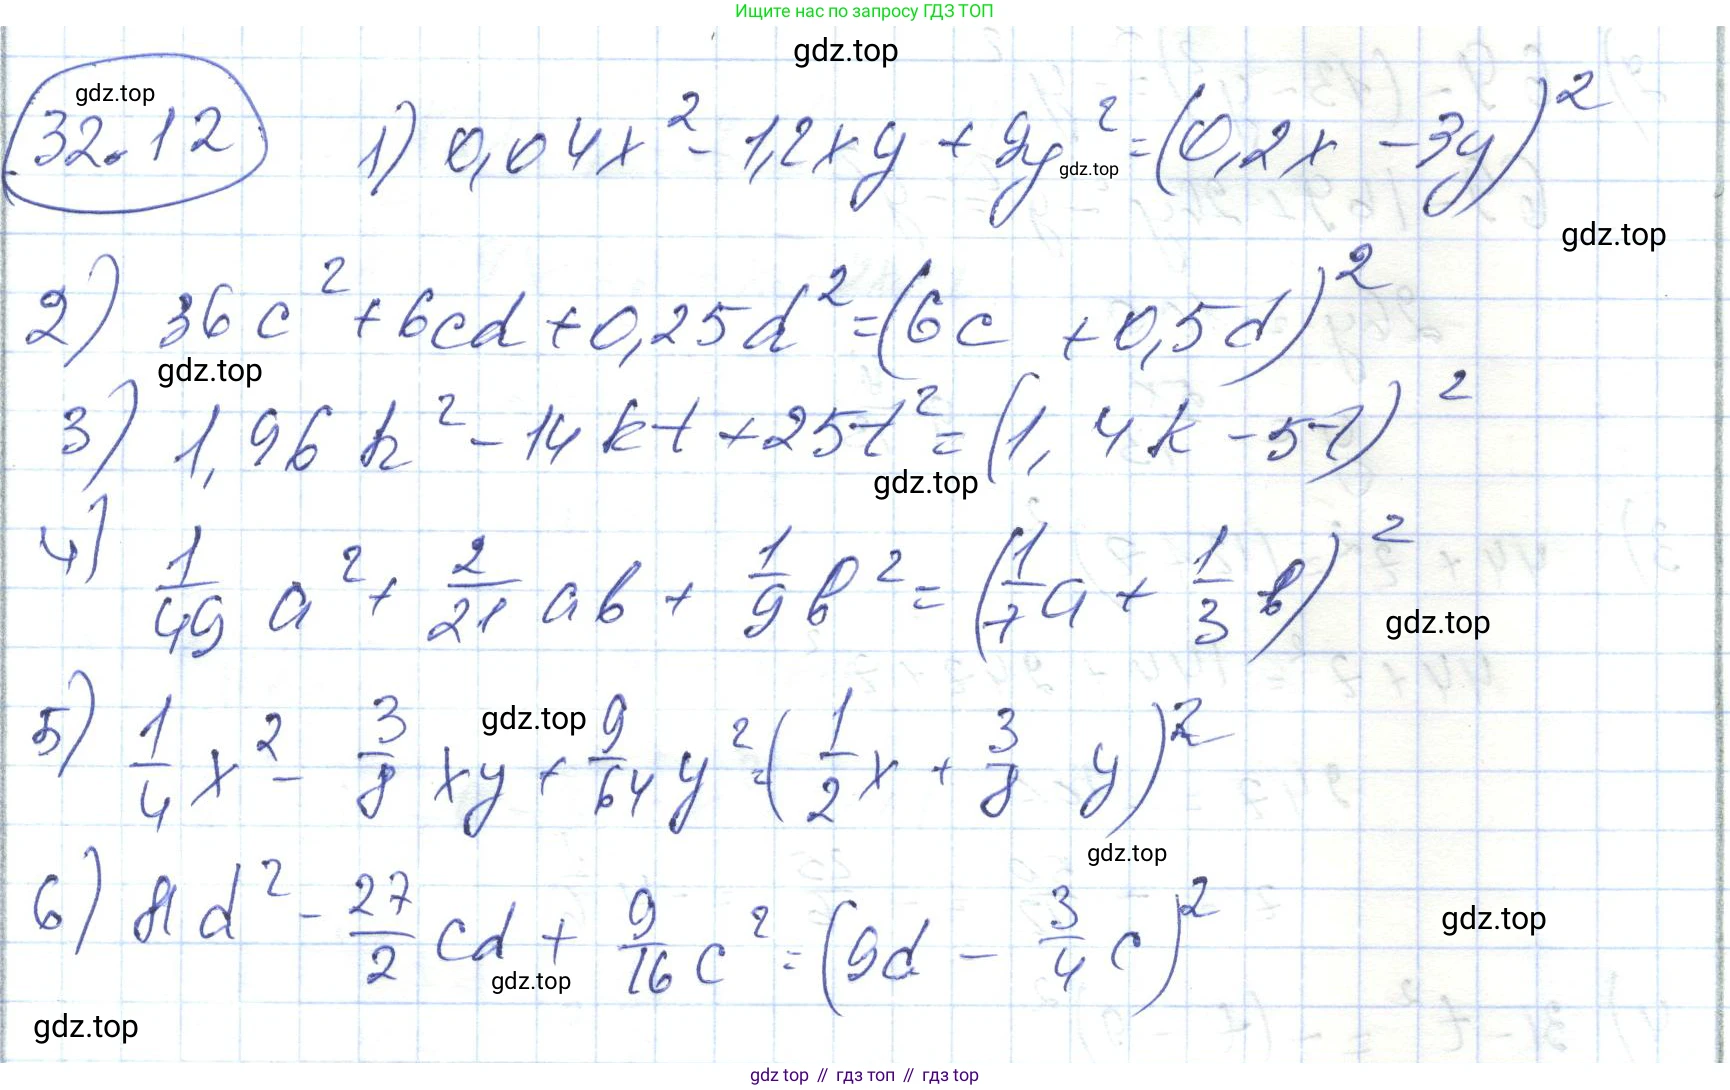 Ищите нас по запросу ГДЗ ТОП
gdz.top
gdz.top
32.12 1) 0,04x² - 1,2xy + 9y² = (0,2x - 3y)²
gdz.top
gdz.top
2) 36c² + 6cd + 0,25d² = (6c + 0,5d)²
gdz.top
3) 1,96k² - 14kt + 25t² = (1,4k - 5t)²
gdz.top
4) 1/49 a² + 2/21 ab + 1/9 b² = (1/7 a + 1/3 b)²
gdz.top
gdz.top
5) 1/4 x² - 3/8 xy + 9/64 y² = (1/2 x + 3/8 y)²
gdz.top
6) 81d² - 27/2 cd + 9/16 c² = (9d - 3/4 c)²
gdz.top
gdz.top
gdz.top
gdz top // гдз топ // гдз top